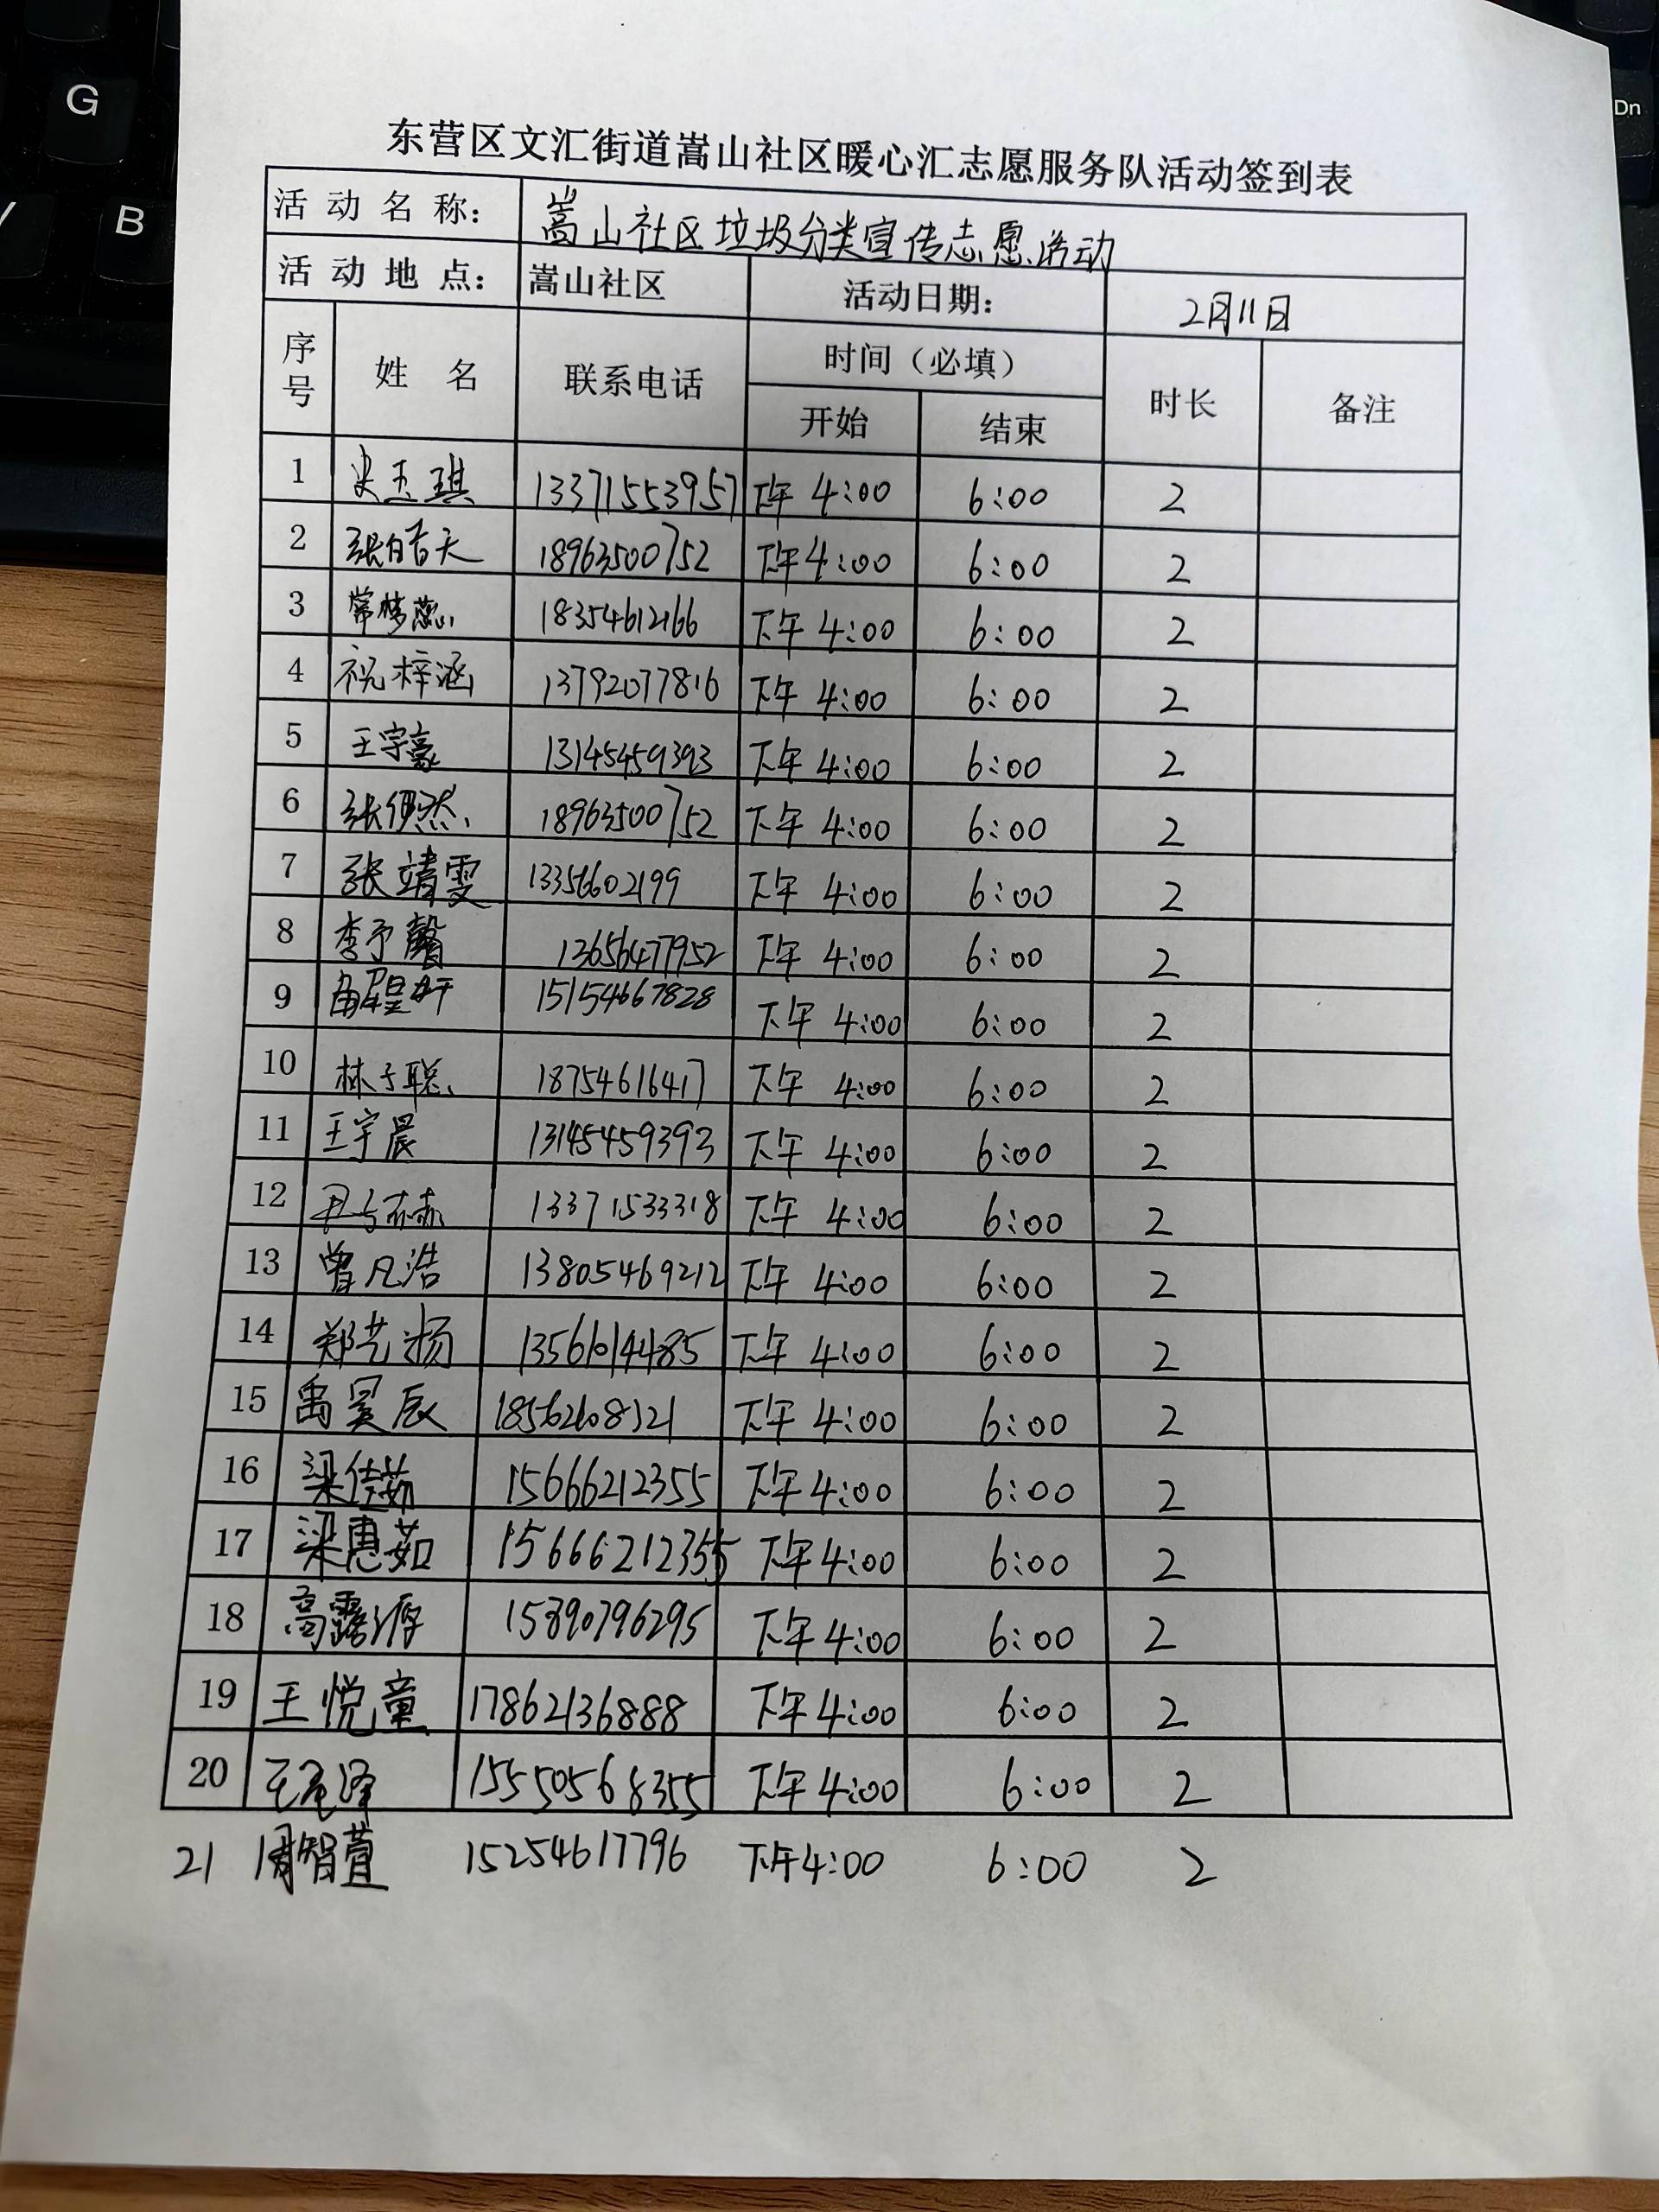 东营区文汇街道嵩山社区暖心汇志愿服务队活动签到表
活动名称： 嵩山社区垃圾分类宣传志愿活动
活动地点： 嵩山社区 活动日期： 2月11日
序号 姓 名 联系电话 时间（必填） 时长 备注
开始 结束
1 13371553957 下午 4:00 6:00 2
2 张皓天 18963500752 下午 4:00 6:00 2
3 常梦蕊 18354612166 下午 4:00 6:00 2
4 祝梓涵 13792077816 下午 4:00 6:00 2
5 王宇豪 13145459393 下午 4:00 6:00 2
6 18963500752 下午 4:00 6:00 2
7 张靖雯 13356602199 下午 4:00 6:00 2
8 李予馨 13656477952 下午 4:00 6:00 2
9 15154667828 下午 4:00 6:00 2
10 林子聪 18754616417 下午 4:00 6:00 2
11 王宇晨 13145459393 下午 4:00 6:00 2
12 13371533318 下午 4:00 6:00 2
13 曾凡浩 13805469212 下午 4:00 6:00 2
14 郑艺扬 13561014485 下午 4:00 6:00 2
15 禹昊辰 下午 4:00 6:00 2
16 梁佳茹 15666212355 下午 4:00 6:00 2
17 梁惠茹 15666212355 下午 4:00 6:00 2
18 高露源 15890796295 下午 4:00 6:00 2
19 王悦童 17862136888 下午 4:00 6:00 2
20 15550568355 下午 4:00 6:00 2
21 周智萱 15254617796 下午 4:00 6:00 2
G
B
V
Dn